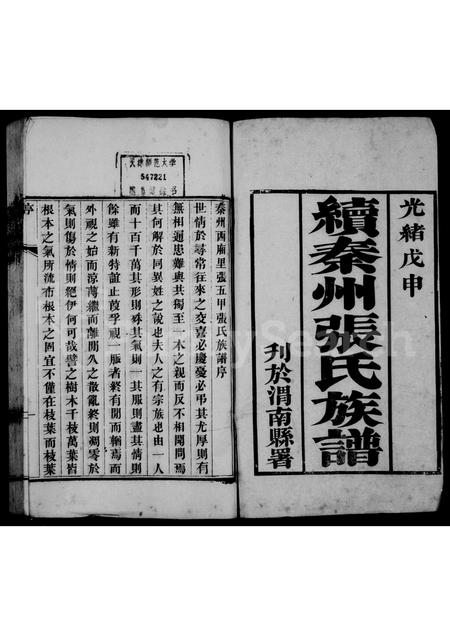 光緒戊申
續秦州張氏族譜
刊於渭南縣署
天津師范大學
547221
圖書館藏書
秦州西廂里張五甲張氏族譜序
世情於尋常往來之交喜必慶憂必弔其尤厚則有
無相通患難與共獨至一本之親而反不相聞問焉
其何解於同異姓之誼也夫人之有宗族也由一人
而十百千萬其形則殊其氣則一其服則盡其情則
餘雖有新特誼止葭莩視一脈者終有間而輈焉而
外視之始而涼薄繼而離間久之散亂終則凋零於
氣則傷於情則絕伊何可哉譬之樹木千枝萬葉皆
根本之氣所流市根本之固宜不僅在枝葉而枝葉
序